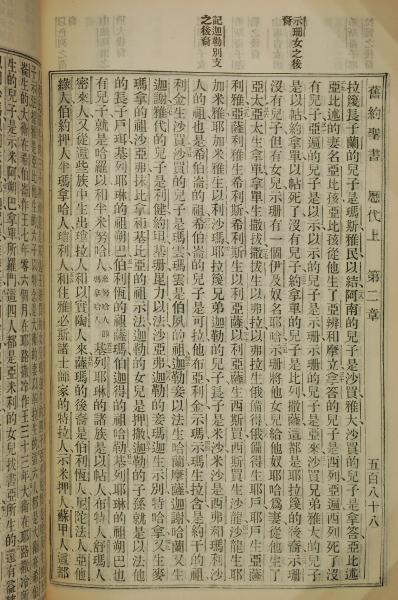 舊約聖書 歷代上 第二章 五百八十八
示珊女之後裔
記迦勒別支之後裔
拉篾長子蘭的兒子是瑪斯雅民以結阿南的兒子是沙買雅大沙買的兒子是拿答亞比述
亞比述的妻名亞比孩亞比孩從他生了亞辦和摩立拿答的兒子是西列亞遍西列死了沒
有兒子亞遍的兒子是以示以示的兒子是示珊示珊的兒子是亞來沙買兄弟雅大的兒子
是以帖約拿單以帖死了沒有兒子約拿單的兒子是比列撒薩這都是耶拉篾的後裔示珊
沒有兒子但有女兒示珊有一個伊及奴名耶哈示珊將他女兒給他奴耶哈為妻從他生了
亞太亞太生拿單拿單生撒拔撒拔生以弗拉以弗拉生俄備得俄備得生耶戶耶戶生亞薩
利雅亞薩利雅生希利斯希利斯生以利亞薩以利亞薩生西斯買西斯買生沙龍沙龍生耶
加米雅耶加米雅生以利沙瑪耶拉篾兄弟迦勒的兒子長子是米沙米沙是西弗和瑪利沙
人的祖也是希伯崙的祖希伯崙的兒子是可拉他布亞利金示瑪示瑪生拉含是約干的祖
利金生沙買沙買的兒子是瑪雲瑪雲是伯夙的祖迦勒妾以法生哈蘭摩薩迦謝哈蘭又生
迦謝雅代的兒子是利健約坦基珊毘力以法沙亞弗迦勒的妾瑪迦生示別特哈拿又生麥
瑪拿的祖沙亞弗抹比拿和基比亞的祖示法迦勒的女兒是押撒迦勒的子孫就是以法他
的長子戶珥基列耶琳的祖朔巴伯利恆的祖薩瑪伯迦得的祖哈勒基列耶琳的祖朔巴也
有兒子就是哈羅以和半米努哈人 基列耶琳的諸族是以帖人布特人舒瑪人
密來人又從這些族中生出瑣拉人和以實陶人來薩瑪的後裔是伯利恆人尼陀法人亞他
綠人伯約押人半瑪拿哈人瑣利人和住雅必斯諸士師家的特拉人示米押人蘇甲人這都